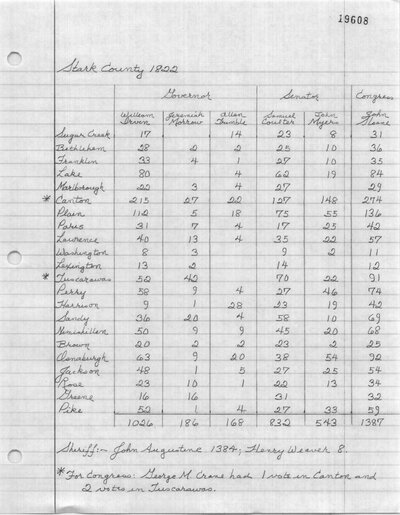 19608
Stark County 1822
Governor Senator Congress
William Irvin Jeremiah Morrow Allen Trimble Samuel Coulter John Myers John Sloane
Sugar Creek 17 14 23 8 31
Bethlehem 28 2 2 25 10 36
Franklin 33 4 1 27 10 35
Lake 80 4 62 19 84
Marlborough 22 3 4 27 29
* Canton 215 27 22 127 148 274
Plain 112 5 18 75 55 136
Paris 31 7 4 17 25 42
Lawrence 40 13 4 35 22 57
Washington 8 3 9 2 11
Lexington 13 2 14 12
* Tuscarawas 52 42 70 22 91
Perry 58 9 4 27 46 74
Harrison 9 1 28 23 19 42
Sandy 36 20 4 58 10 69
Nimishillen 50 9 9 45 20 68
Brown 20 2 2 23 2 25
Osnaburgh 63 9 20 38 54 92
Jackson 48 1 5 27 25 54
Rose 23 10 1 22 13 34
Greene 16 16 31 32
Pike 52 1 4 27 33 59
1026 186 168 832 543 1387
Sheriff:- John Augustine 1384; Henry Weaver 8.
* For Congress: George M. Crane had 1 vote in Canton and
2 votes in Tuscarawas.